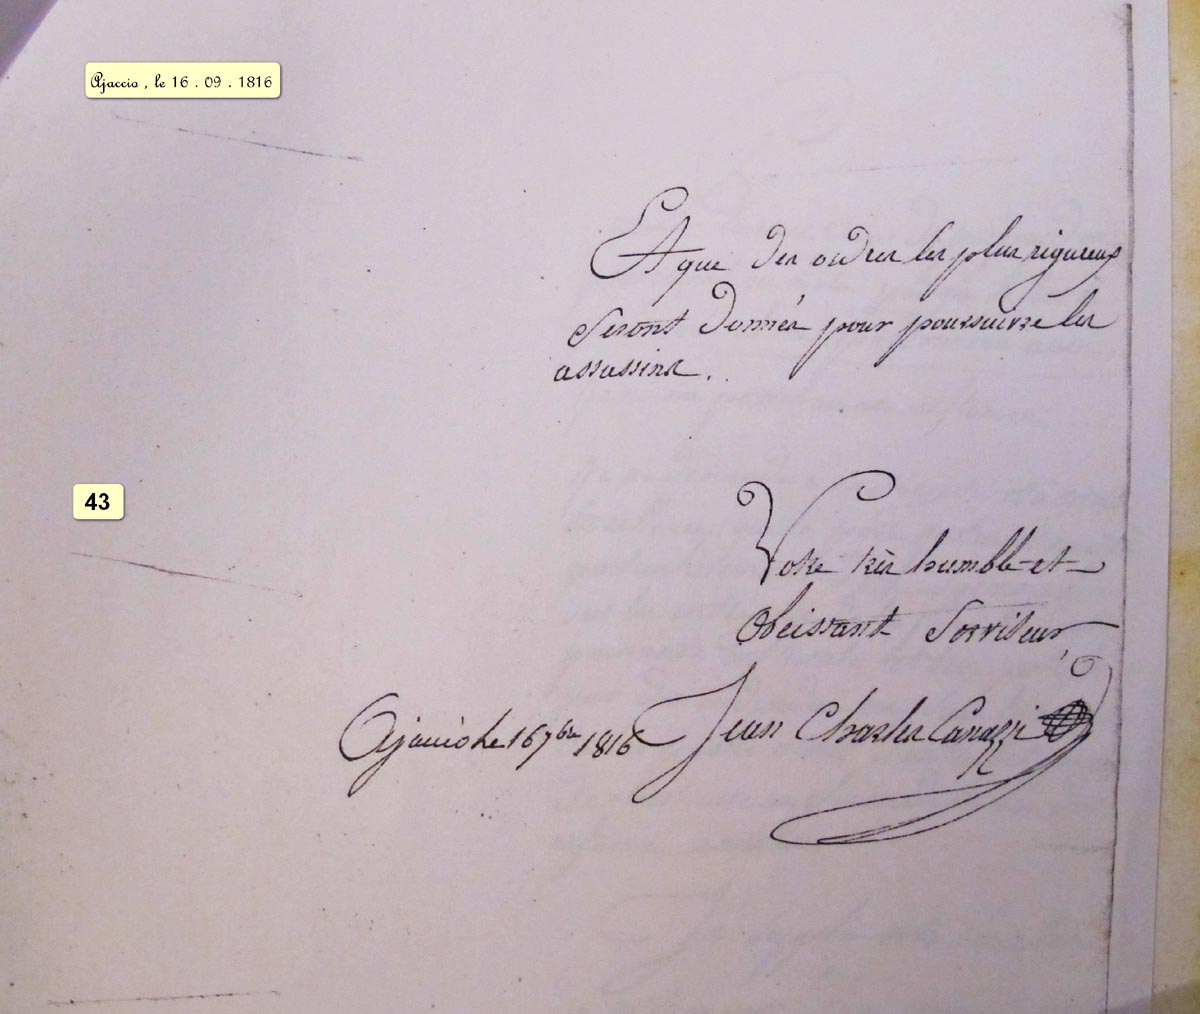 Ajaccio , le 16 . 09 . 1816
Et que des ordres les plus rigureux
Seront donnés pour poursuivre les
assassins.
43
Votre très humble et
Obeissant Serviteur
Ajaccio le 16 7bre 1816 Jean Charles Canazzi